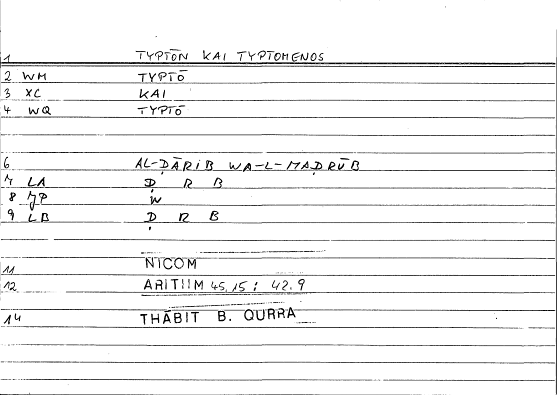 1 TYPTŌN KAI TYPTOMENOS
2 WM TYPTŌ
3 XC KAI
4 WQ TYPTŌ
6 AL-ḌĀRIB WA-L-MAḌRŪB
7 LA Ḍ R B
8 JP W
9 LB Ḍ R B
11 NICOM
12 ARITIIM 45,15; 42.9
14 THĀBIT B. QURRA